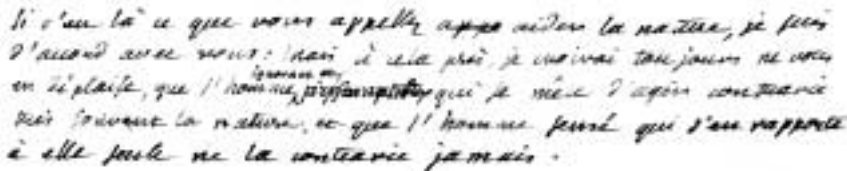 si c'en là ce que vous appellez aider la nature, je suis
d'accord avec vous: mais à cela près, je croirai toujours ne vous
en déplaise, que l'homme ignorant qui se mêle d'agir contrarie
très souvent la nature, et que l'homme sensé qui s'en rapporte
à elle seule ne la contrarie jamais.